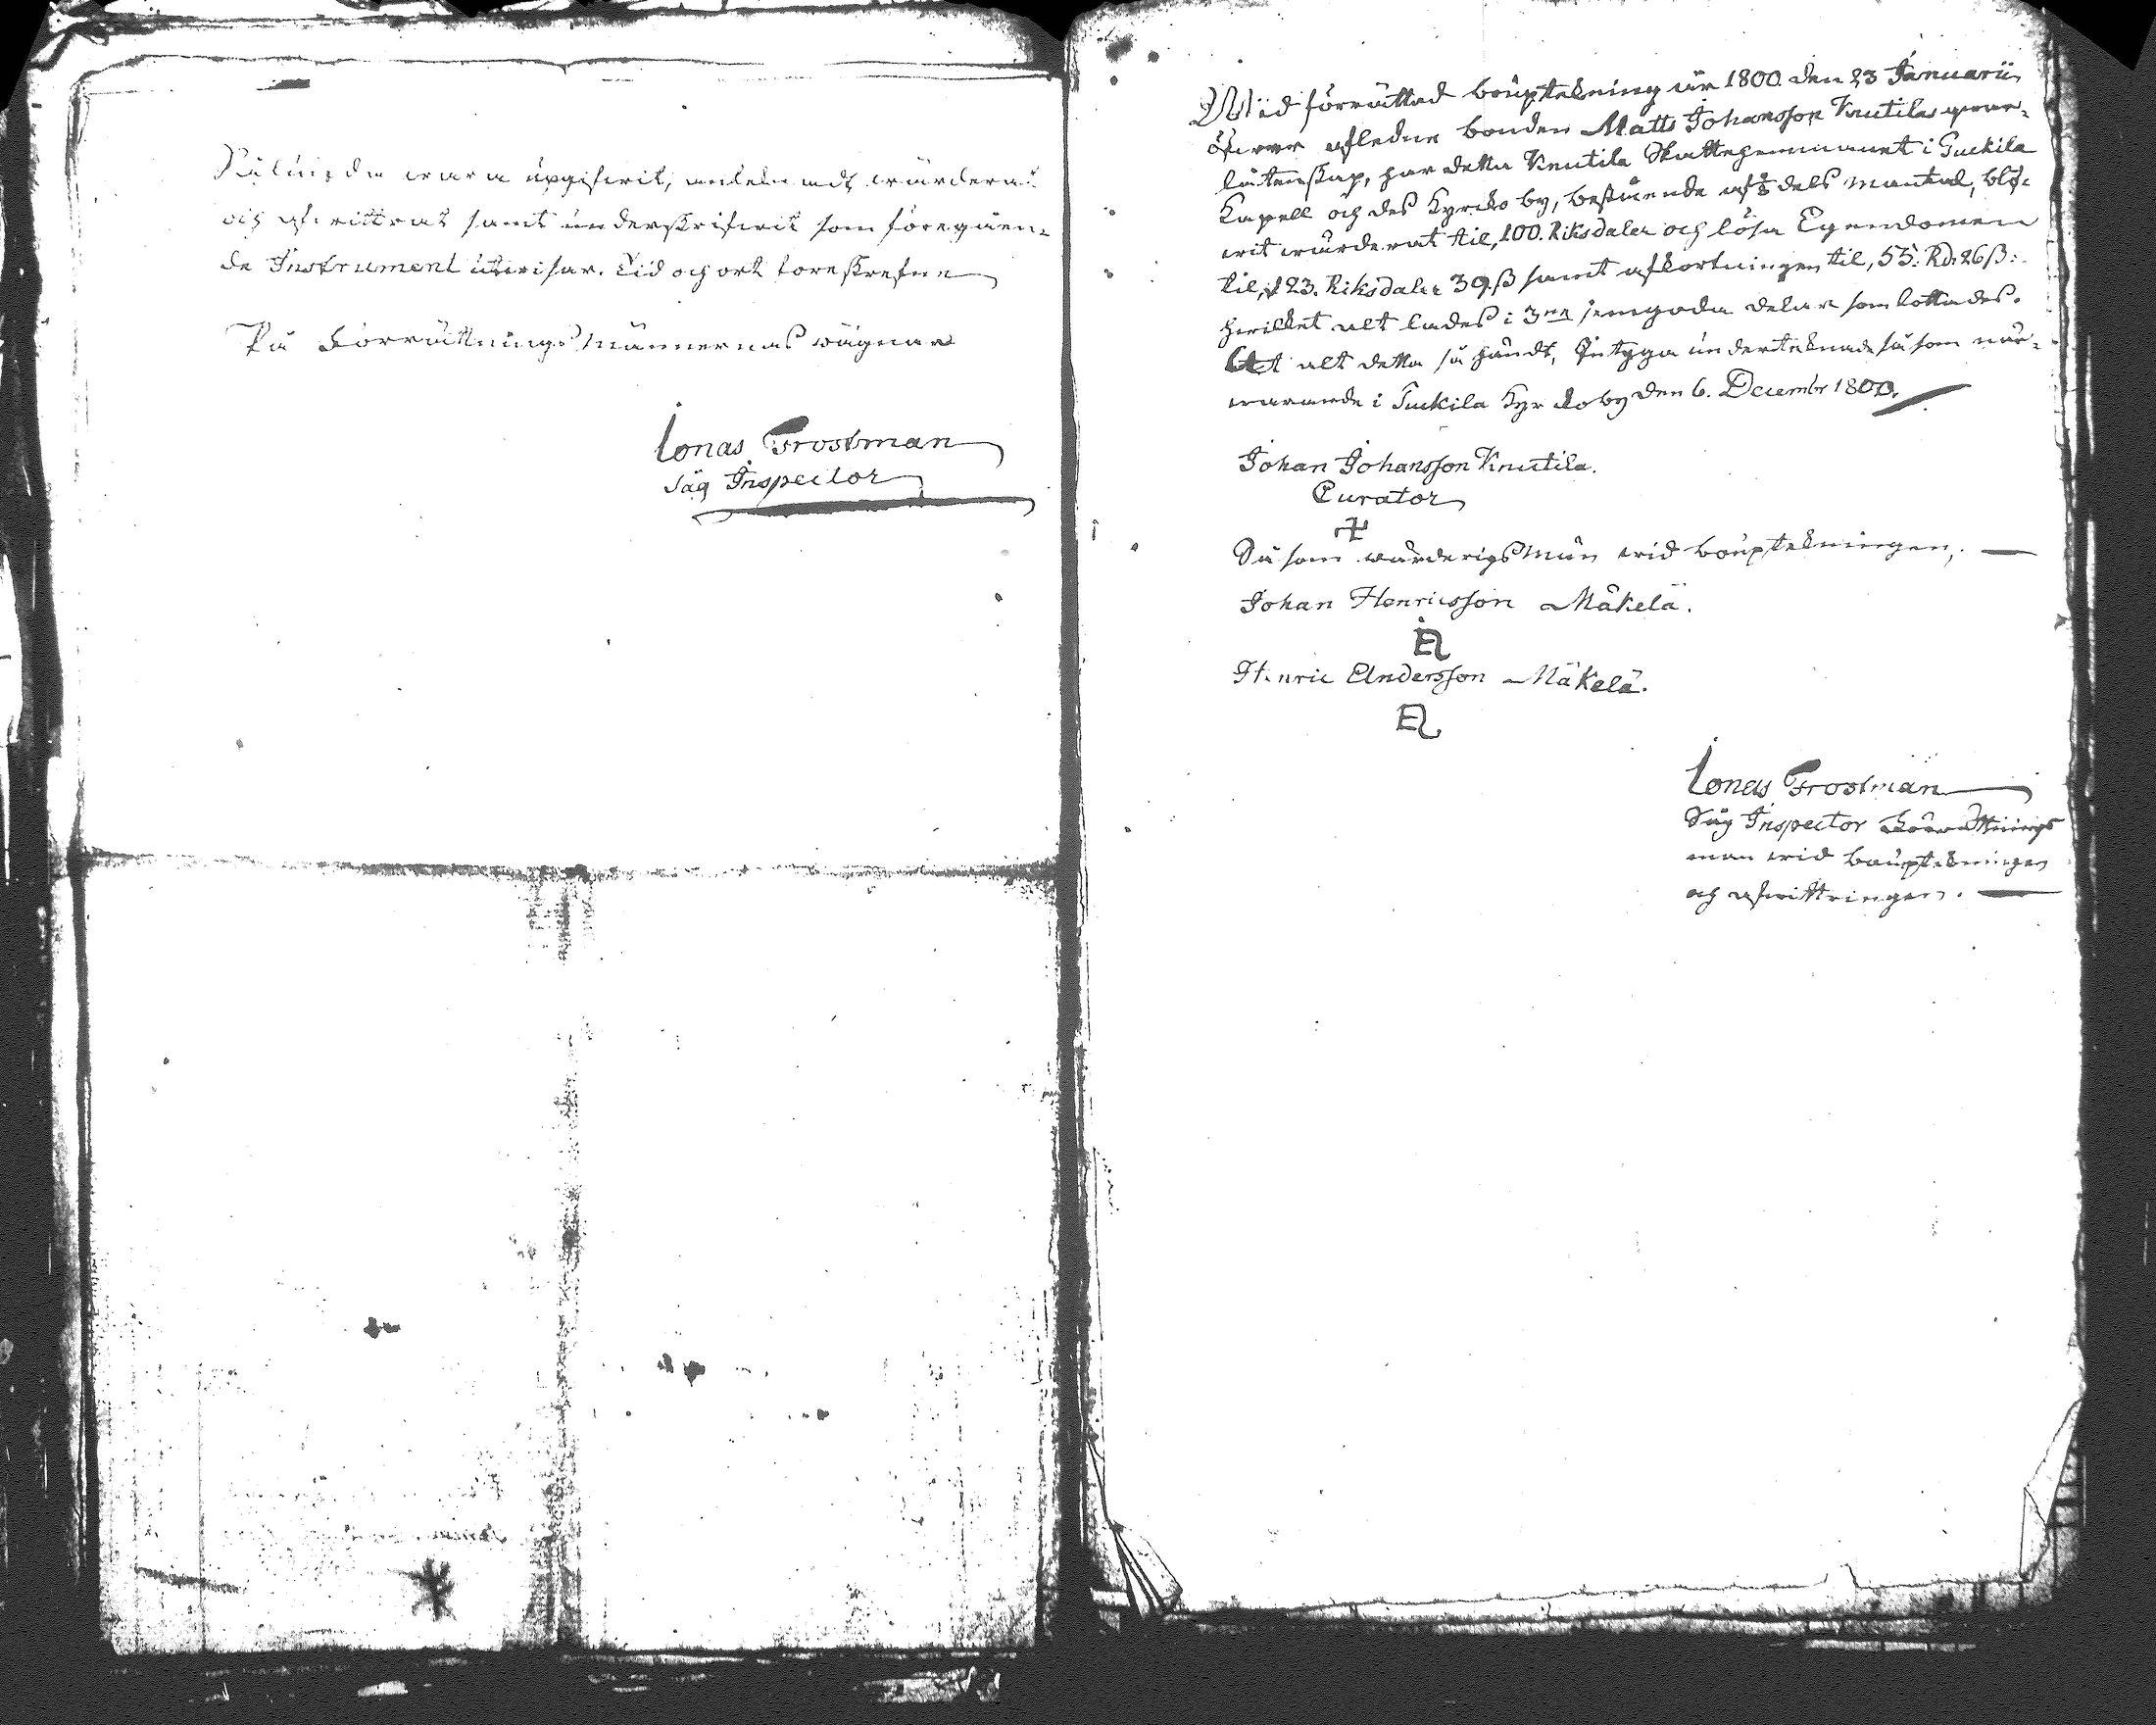 Således vara upgifwit, anteknadt wärderat
och afwittrat samt underskrifwit som föregåen=
de Instrument utwisar. Tid och ort föreskrefne
På Förrättnings Männernas wägnar
Jonas Frostman
Såg Inspector
Wid förrättad bouptekning år 1800 den 23 Januarii
öfwer afledne bonden Matts Johansson Knutilas qwar=
låtenskap, har detta Knutila Skattehemmanet i
Kapell och des Kyrcko by, bestående af dels mantal, blif=
wit wärderat til, 100. Riksdaler och lösa Egendomen
til, 123. Riksdaler 39 ß samt afkortningen til, 55: Rd. 26 ß:
hwilket alt lades i 3ne jemgoda delar som lottades.
At alt detta så händt, Intyga undertecknade så som när=
warande i Kyrckoby den 6. Decembr 1800.
Johan Johansson Knutila.
Curator
Så som wärderings Män wid bouptekningen,
Johan Henricsson Mäkelä.
Henric Andersson Mäkelä.
Jonas Frostman
Såg Inspector Förrättnings
man wid bouptekningen
och afwittringen.